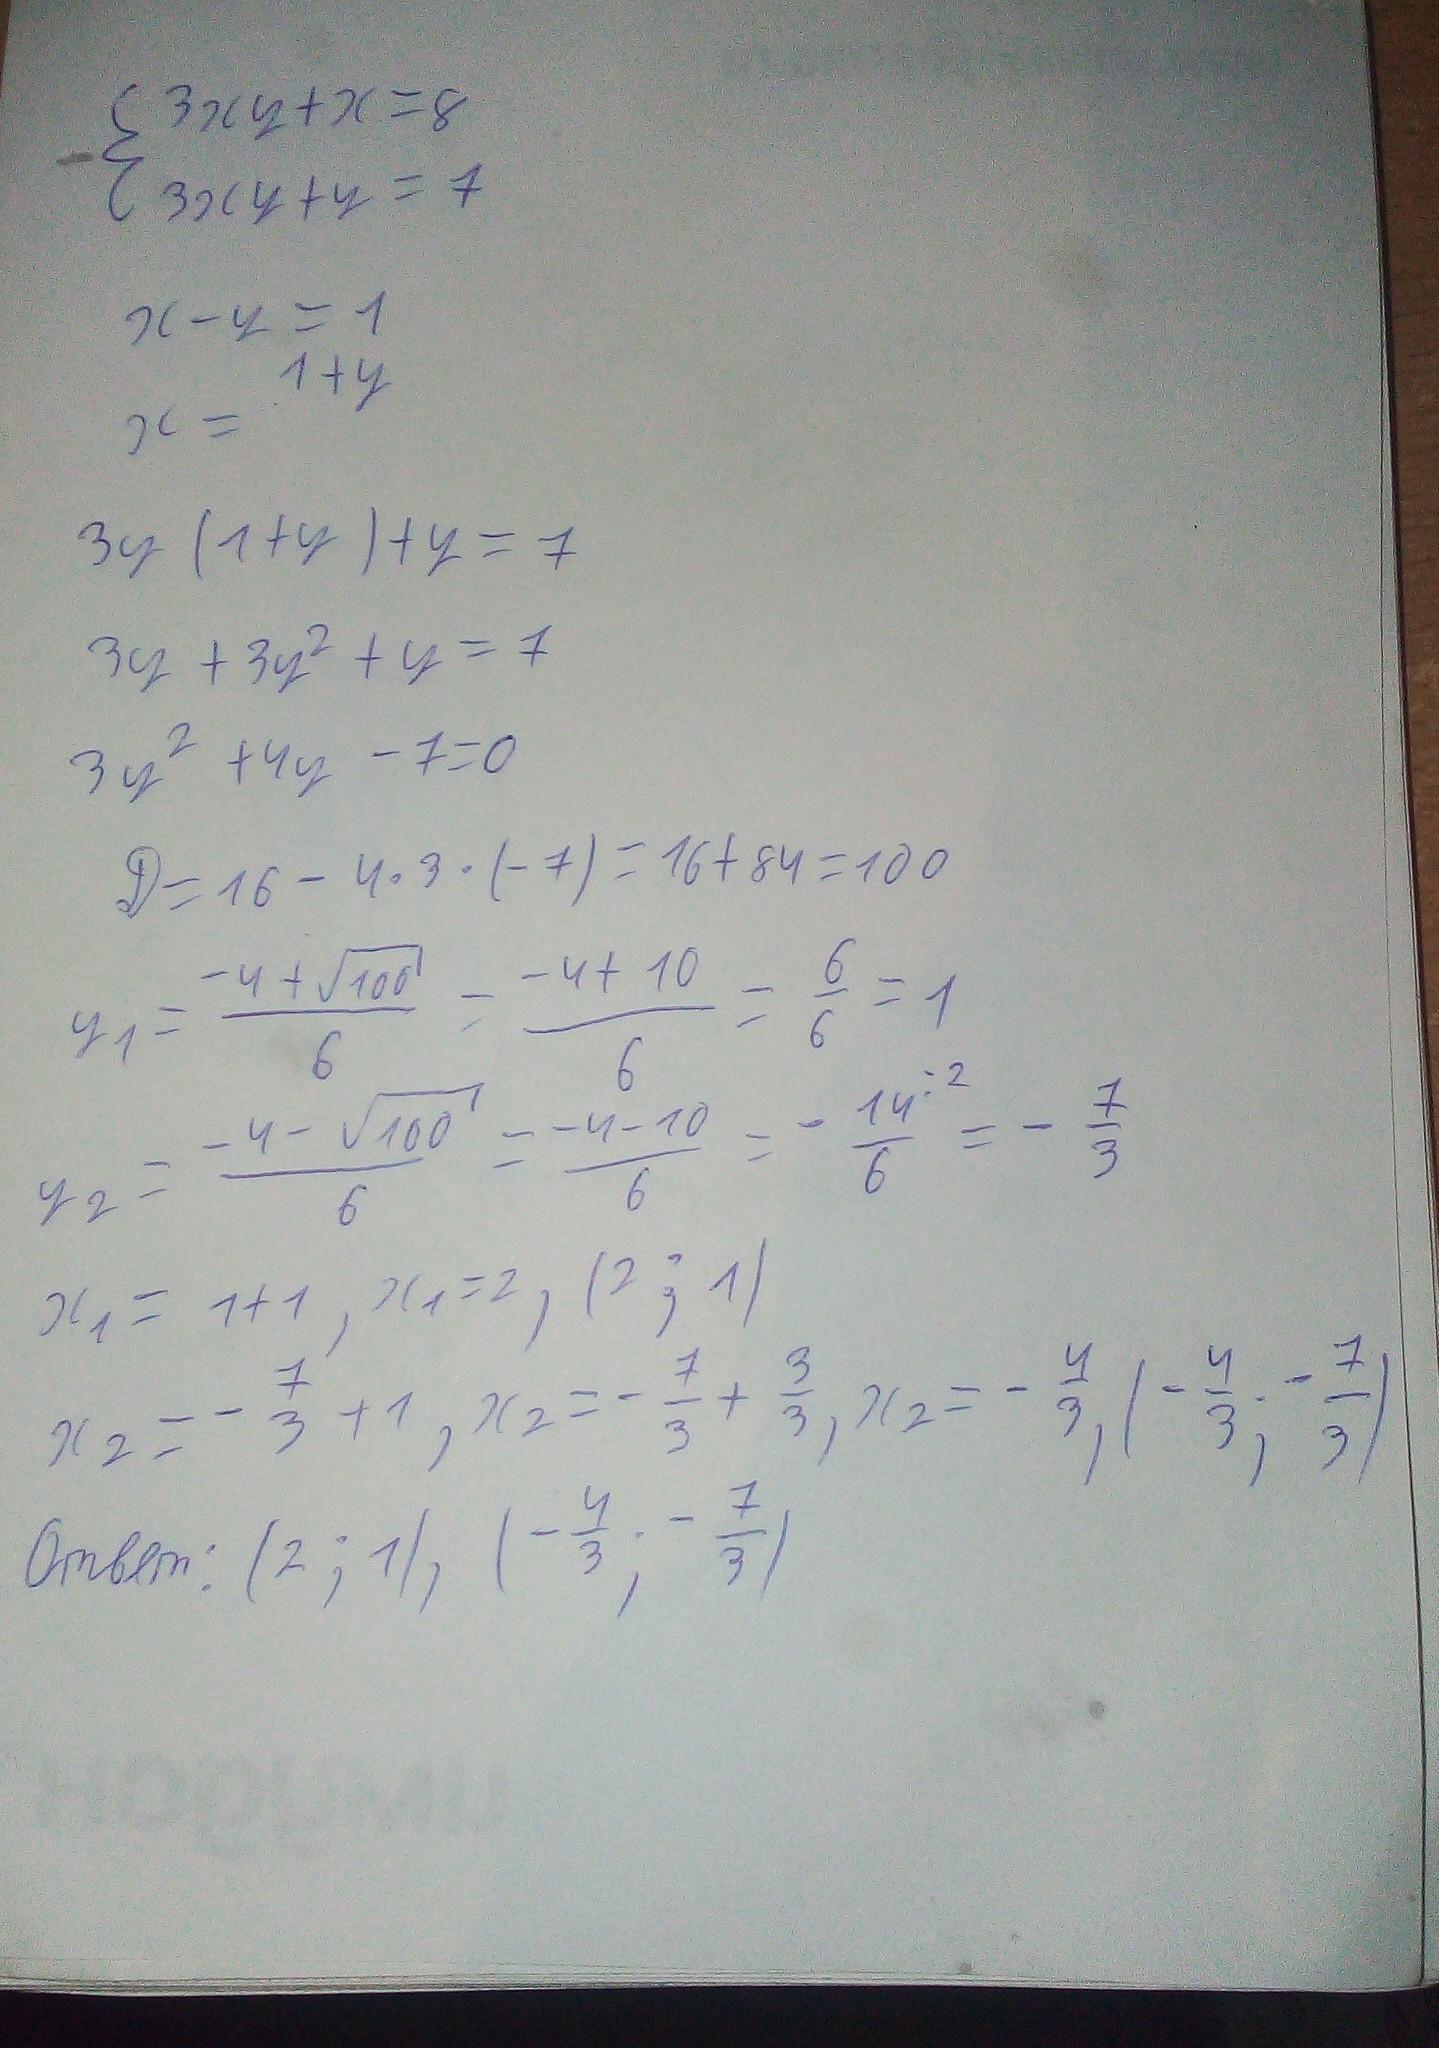 { 3xy+x=8
- { 3xy+y=7
x-y=1
x= 1+y
3y(1+y)+y=7
3y+3y²+y=7
3y²+4y-7=0
D=16-4·3·(-7)=16+84=100
y₁= (-4+√100)/6 = (-4+10)/6 = 6/6 =1
y₂= (-4-√100)/6 = (-4-10)/6 = - 14:2/6 = - 7/3
x₁= 1+1, x₁=2, (2; 1)
x₂=- 7/3 +1, x₂=- 7/3 + 3/3, x₂=- 4/3, (- 4/3; - 7/3)
Ответ: (2; 1), (- 4/3; - 7/3)